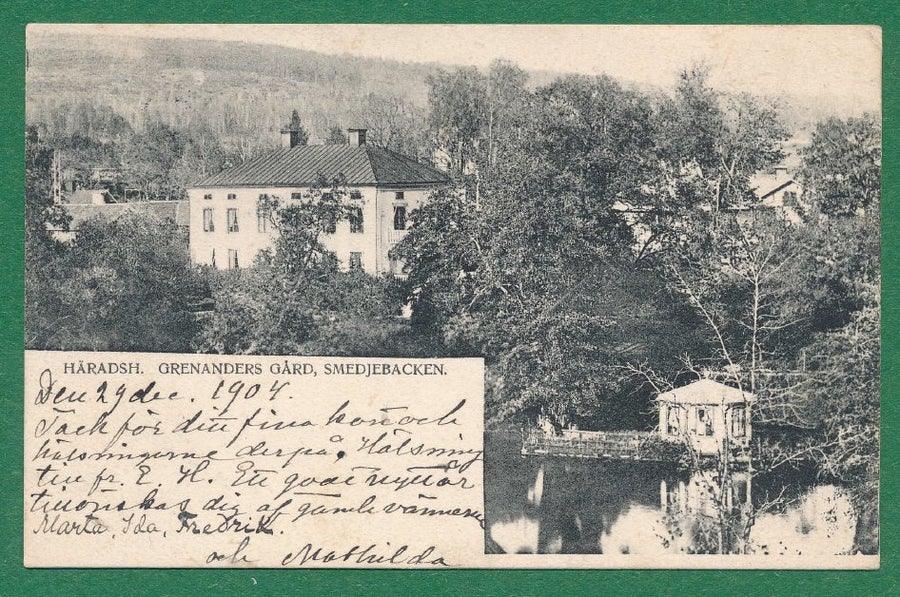 HÄRADSH. GRENANDERS GÅRD, SMEDJEBACKEN.
Den 29 dec. 1904.
Tack för ditt fina kort och
hälsningarne derpå. Hälsning
till fr. E. H. Ett godt nytt år
tillönskas dig af gamle vännerne
Marta, Ida, Fredrik.
och Mathilda